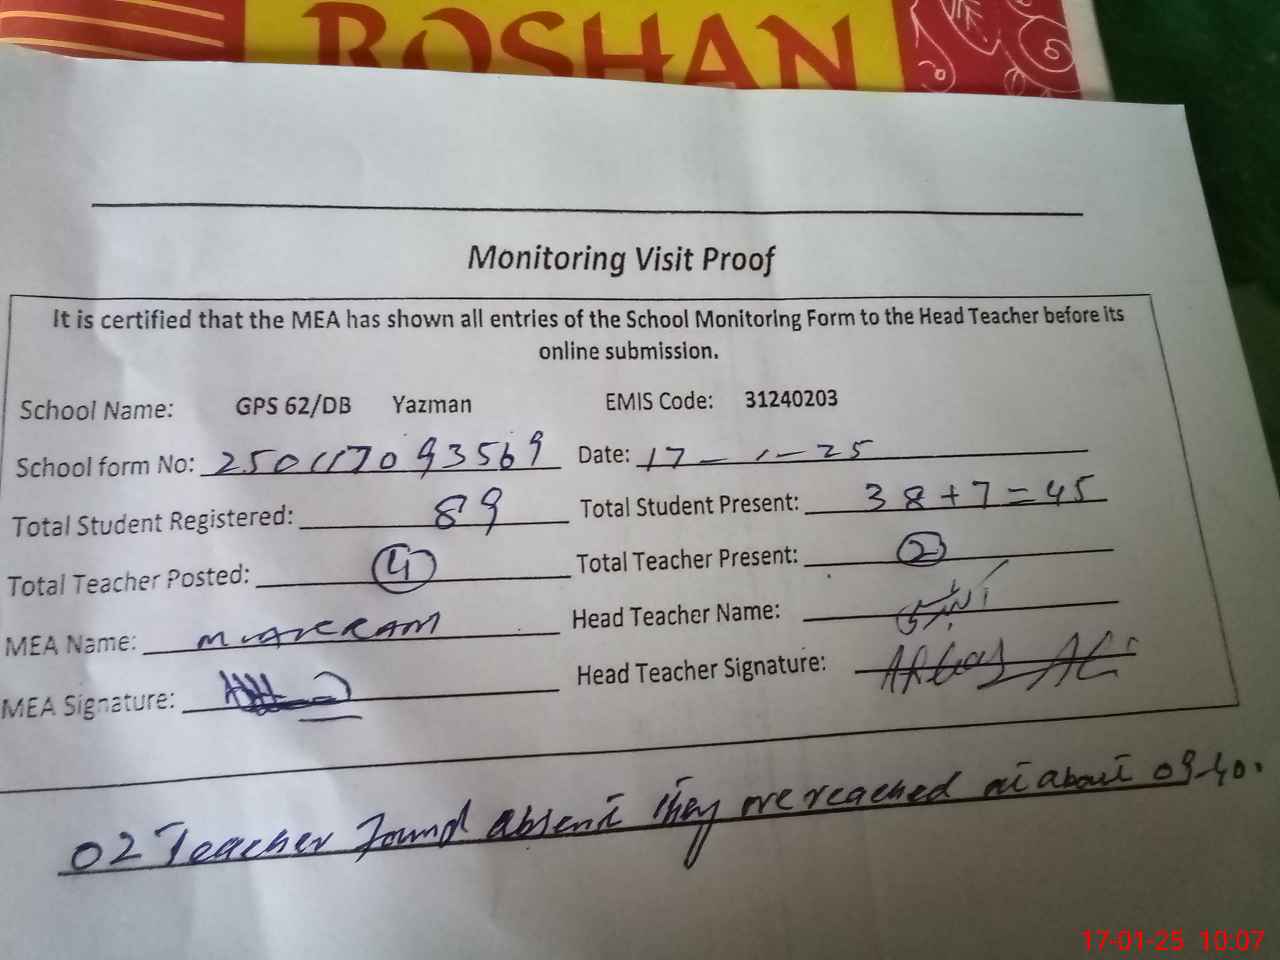 ROSHAN
Monitoring Visit Proof
It is certified that the MEA has shown all entries of the School Monitoring Form to the Head Teacher before its
online submission.
School Name: GPS 62/DB Yazman EMIS Code: 31240203
School form No: 250117093569 Date: 17-1-25
Total Student Registered: 89 Total Student Present: 38+7=45
Total Teacher Posted: 4 Total Teacher Present: 2
MEA Name: Head Teacher Name:
MEA Signature: Head Teacher Signature: Abbas Ali
02 Teacher Found absent they are reached at about 09-40.
17-01-25 10:07